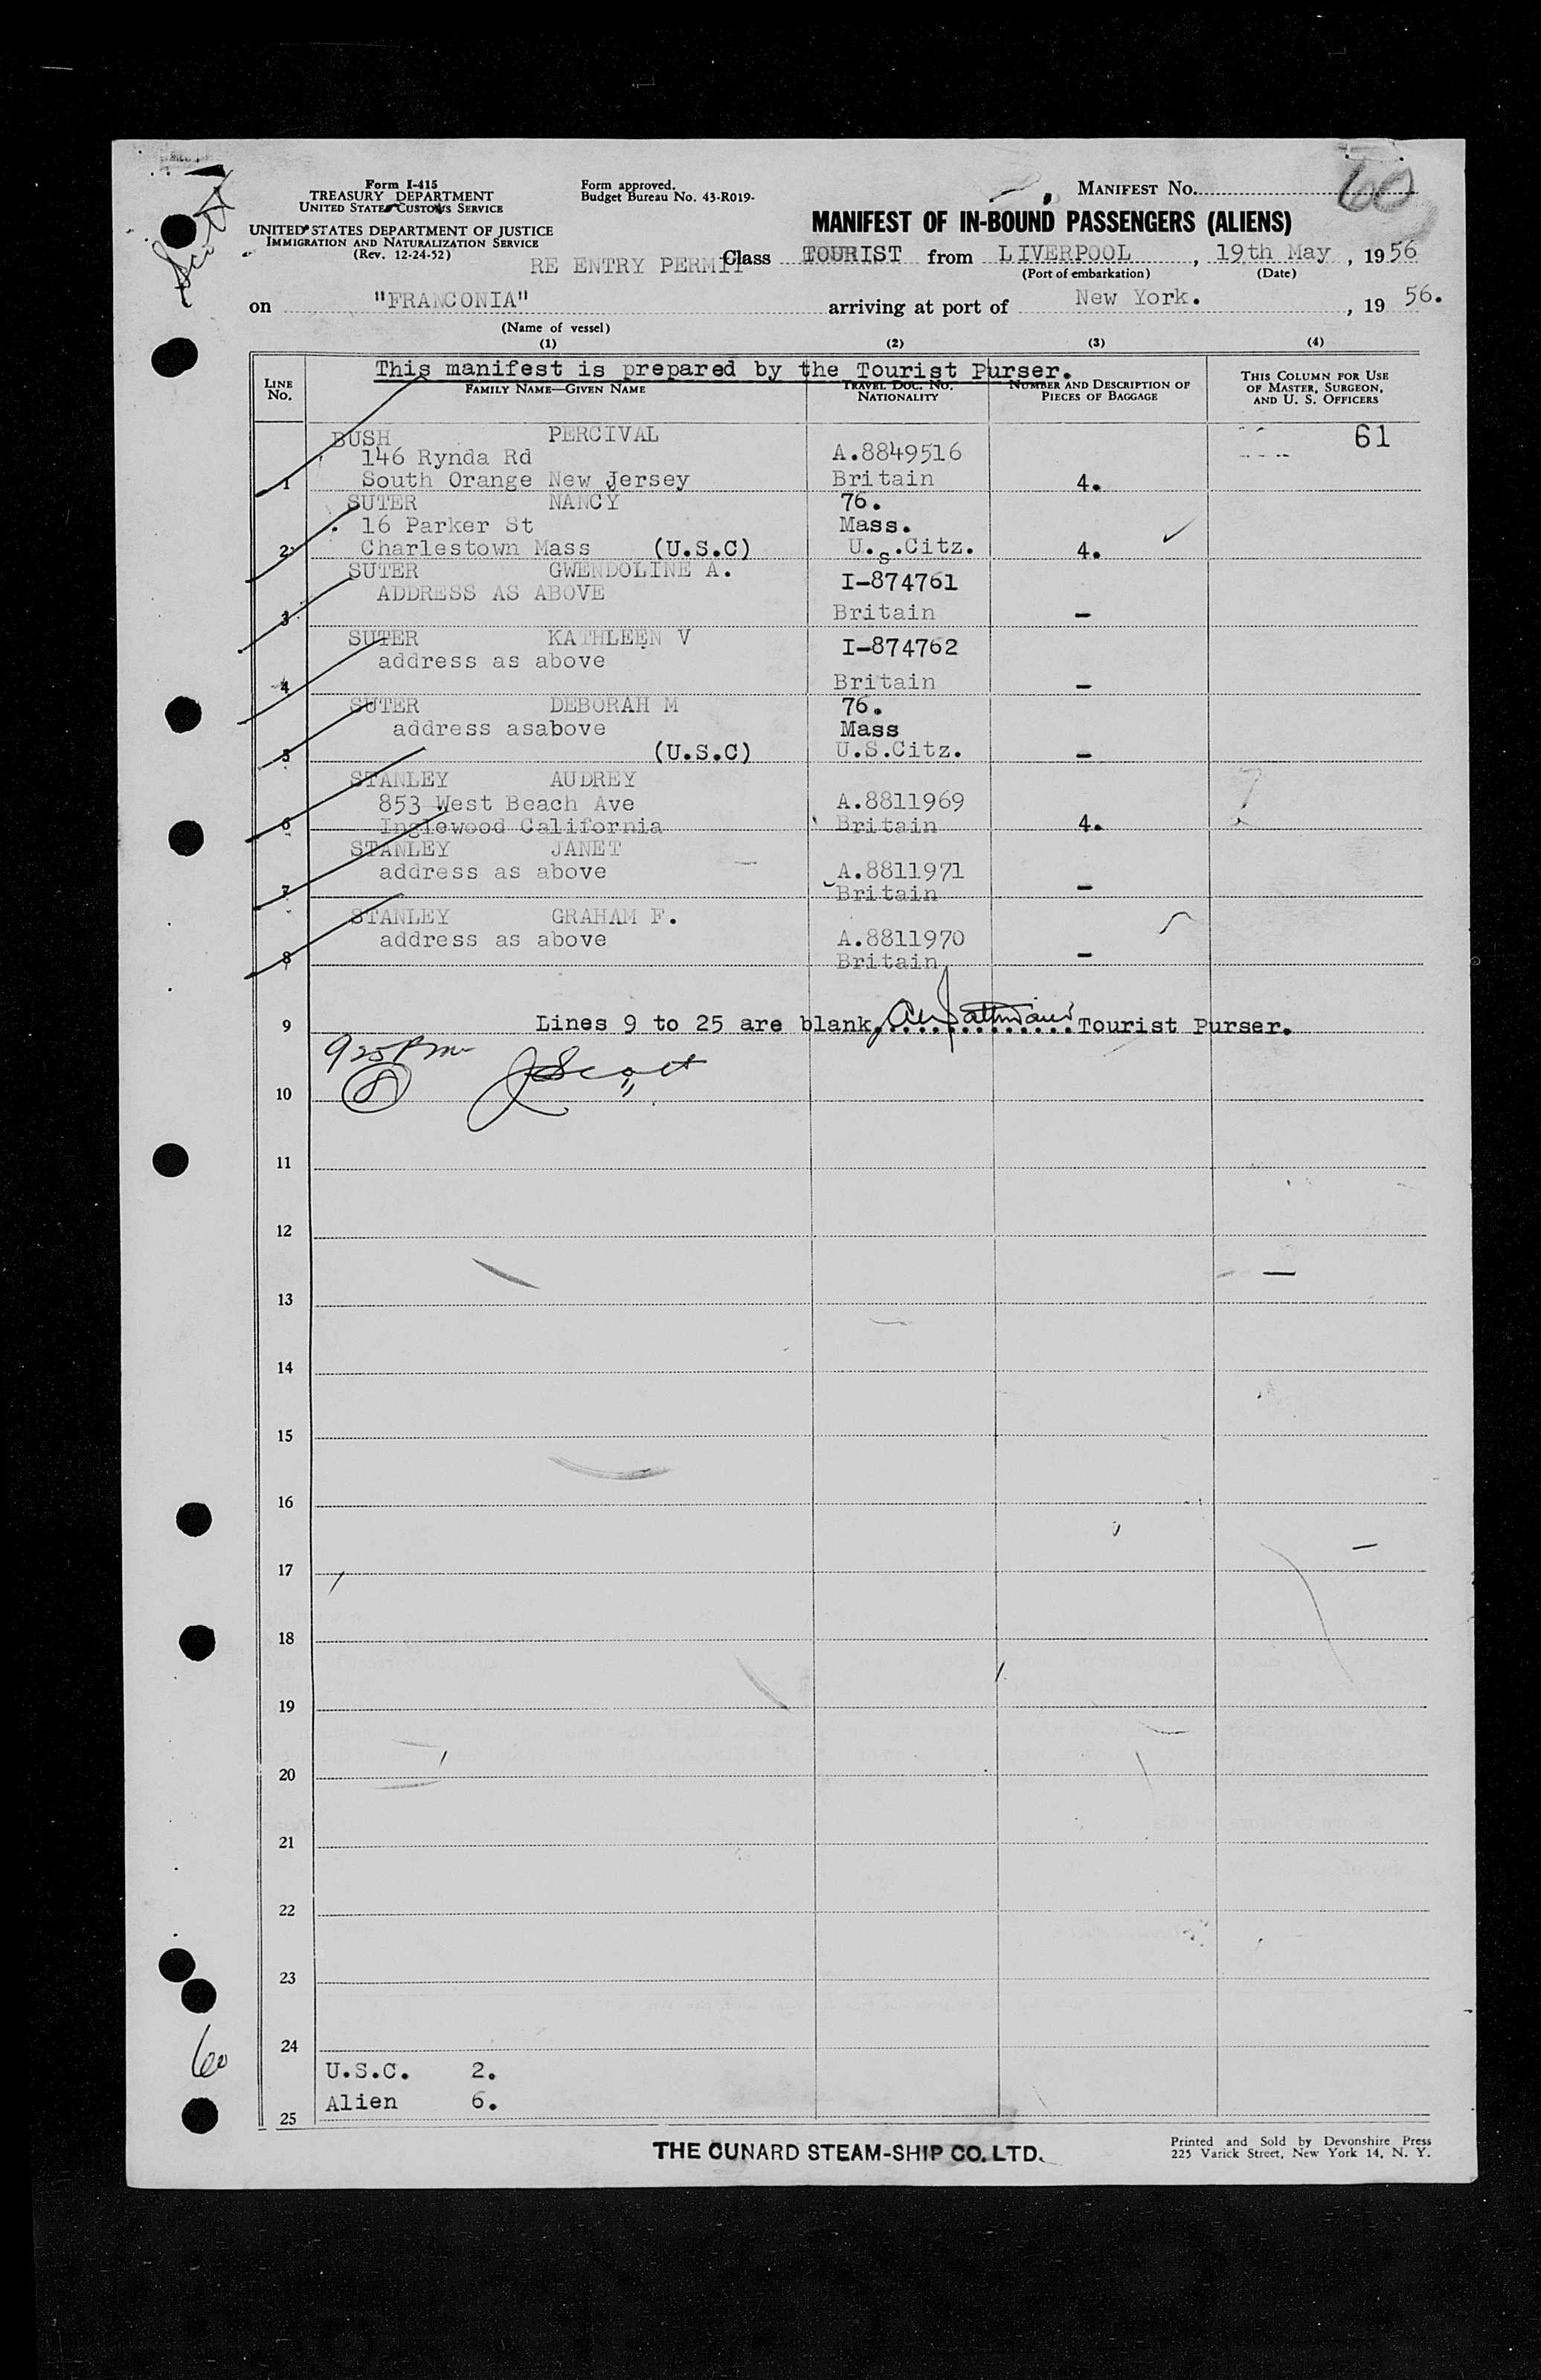 Scott
Form I-415
TREASURY DEPARTMENT
UNITED STATES CUSTOMS SERVICE
UNITED STATES DEPARTMENT OF JUSTICE
IMMIGRATION AND NATURALIZATION SERVICE
(Rev. 12-24-52)
Form approved.
Budget Bureau No. 43-R019-
MANIFEST No. 60
MANIFEST OF IN-BOUND PASSENGERS (ALIENS)
RE ENTRY PERMIT Class TOURIST from LIVERPOOL, 19th May, 1956
(Port of embarkation) (Date)
on "FRANCONIA" arriving at port of New York., 19 56.
(Name of vessel)
(1) (2) (3) (4)
This manifest is prepared by the Tourist Purser.
LINE No. FAMILY NAME—GIVEN NAME TRAVEL DOC. NO. NATIONALITY NUMBER AND DESCRIPTION OF PIECES OF BAGGAGE THIS COLUMN FOR USE OF MASTER, SURGEON, AND U. S. OFFICERS
BUSH PERCIVAL 61
146 Rynda Rd A.8849516
1 South Orange New Jersey Britain 4.
SUTER NANCY 76.
16 Parker St Mass.
2 Charlestown Mass (U.S.C) U.s.Citz. 4.
SUTER GWENDOLINE A. I-874761
ADDRESS AS ABOVE
3 Britain -
SUTER KATHLEEN V I-874762
address as above
4 Britain -
SUTER DEBORAH M 76.
address asabove Mass
5 (U.S.C) U.S.Citz. -
STANLEY AUDREY
853 West Beach Ave A.8811969
6 Inglewood California Britain 4.
STANLEY JANET
address as above A.8811971
7 Britain -
STANLEY GRAHAM F.
address as above A.8811970
8 Britain -
9 Lines 9 to 25 are blank. Tourist Purser.
9 25 PM
10 8 J Scott
11
12
13
14
15
16
17
18
19
20
21
22
23
24
U.S.C. 2.
25 Alien 6.
60
THE CUNARD STEAM-SHIP CO. LTD.
Printed and Sold by Devonshire Press
225 Varick Street, New York 14, N. Y.